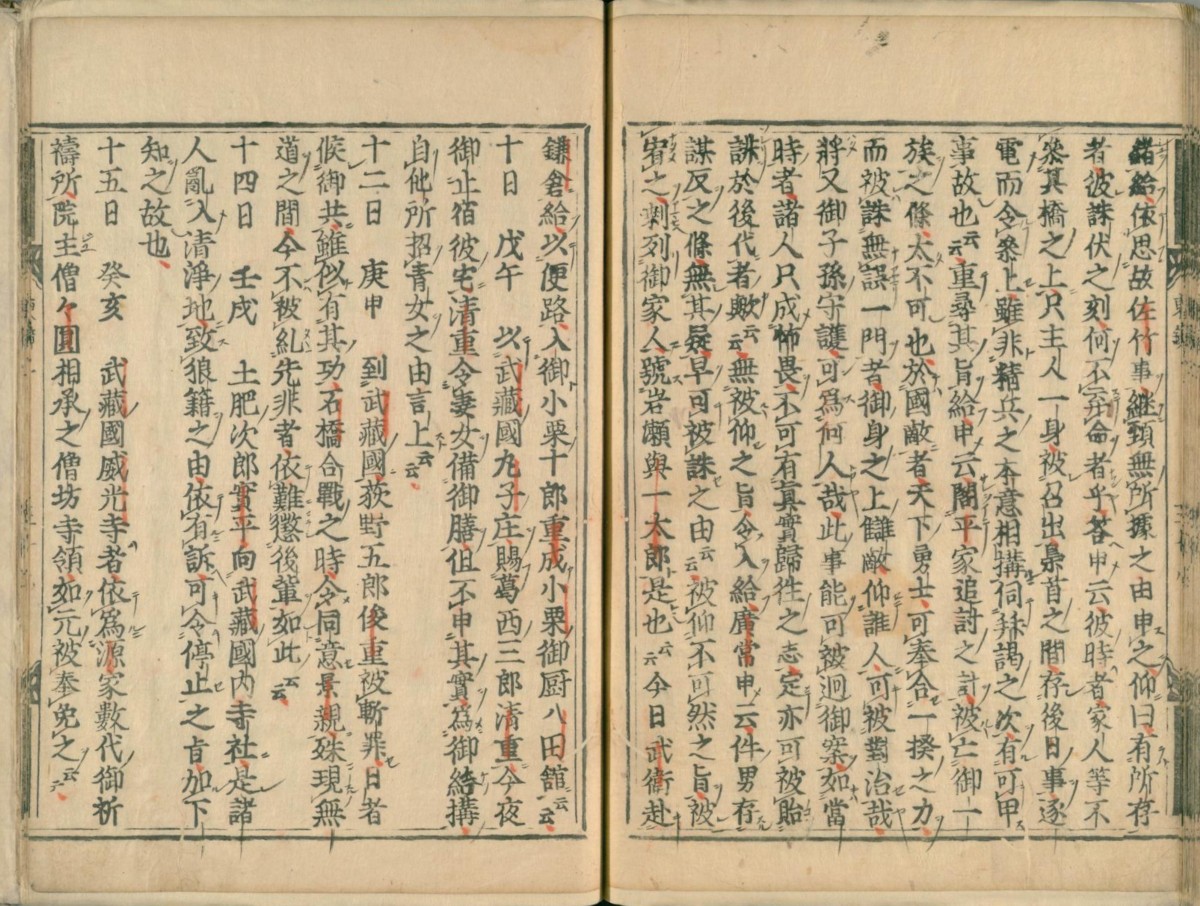 緒給依思故佐竹事継頚無所據之由申之仰曰有所存
者彼誅伏之刻何不弃命者乎荅申云彼時者家人等不
叅其橋之上只主人一身被召出梟首之間存後日事逐
電而令叅上雖非精兵之本意相搆伺拜謁之次有可甲
事故也云云重尋其旨給申云閣平家追討之計被亡御一
族之條太不可也於國敵者天下勇士可奉合一揆之力
而被誅無誤一門者御身之上讎敵仰誰人可被對治哉
將又御子孫守護可為何人哉此事能可被迴御案如當
時者諸人只成怖畏不可有真實歸徃之志定亦可被貽
誹於後代者歟云云無被仰之旨令入給廣常申云件男存
謀反之條無其疑早可被誅之由云云被仰不可然之旨被
宥之剰列御家人號岩瀬與一太郎是也云云今日武衛赴
鎌倉給以便路入御小栗十郎重成小栗御厨八田舘云云
十日　戊午　以武藏國丸子庄賜葛西三郎清重今夜
御止宿彼宅清重令妻女備御膳但不申其實為御結搆
自他所招青女之由言上云云
十二日　庚申　到武藏國荻野五郎俊重被斬罪日者
候御共雖似有其功石橋合戰之時令同意景親殊現無
道之間今不被糺先非者依難懲後輩如此云云
十四日　壬戌　土肥次郎實平向武藏國内寺社是諸
人亂入清浄地致狼籍之由依有訴可令停止之旨加下
知之故也
十五日　癸亥　武藏國威光寺者依爲源家數代御祈
禱所院主僧々圓相承之僧坊寺領如元被奉免之云云